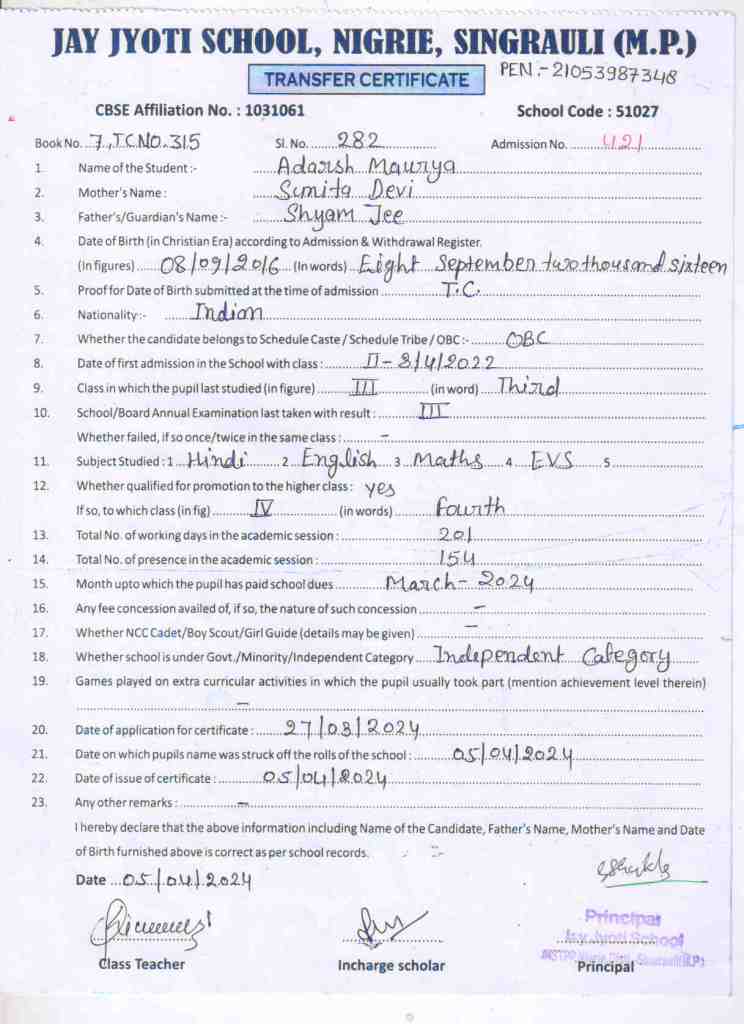 JAY JYOTI SCHOOL, NIGRIE, SINGRAULI (M.P.)
TRANSFER CERTIFICATE PEN:-21053987348
CBSE Affiliation No. : 1031061 School Code : 51027
Book No. 7, T.C NO. 315 Sl. No. 282 Admission No. 421
1. Name of the Student :- Adarsh Maurya
2. Mother's Name : Sumita Devi
3. Father's/Guardian's Name :- Shyam Jee
4. Date of Birth (in Christian Era) according to Admission & Withdrawal Register.
(In figures) 08/09/2016 (In words) Eight September two thousand sixteen
5. Proof for Date of Birth submitted at the time of admission T.C.
6. Nationality:- Indian
7. Whether the candidate belongs to Schedule Caste / Schedule Tribe / OBC :- OBC
8. Date of first admission in the School with class : II - 8/4/2022
9. Class in which the pupil last studied (in figure) III (in word) Third
10. School/Board Annual Examination last taken with result : III
Whether failed, if so once/twice in the same class : -
11. Subject Studied : 1 Hindi 2 English 3 Maths 4 EVS 5
12. Whether qualified for promotion to the higher class : yes
If so, to which class (in fig) IV (in words) fourth
13. Total No. of working days in the academic session : 201
14. Total No. of presence in the academic session : 154
15. Month upto which the pupil has paid school dues March - 2024
16. Any fee concession availed of, if so, the nature of such concession -
17. Whether NCC Cadet/Boy Scout/Girl Guide (details may be given) -
18. Whether school is under Govt./Minority/Independent Category Independent Category
19. Games played on extra curricular activities in which the pupil usually took part (mention achievement level therein)
-
20. Date of application for certificate : 27/03/2024
21. Date on which pupils name was struck off the rolls of the school : 05/04/2024
22. Date of issue of certificate : 05/04/2024
23. Any other remarks : -
I hereby declare that the above information including Name of the Candidate, Father's Name, Mother's Name and Date
of Birth furnished above is correct as per school records.
Date 05/04/2024
Principal
Jay Jyoti School
Class Teacher Incharge scholar Principal